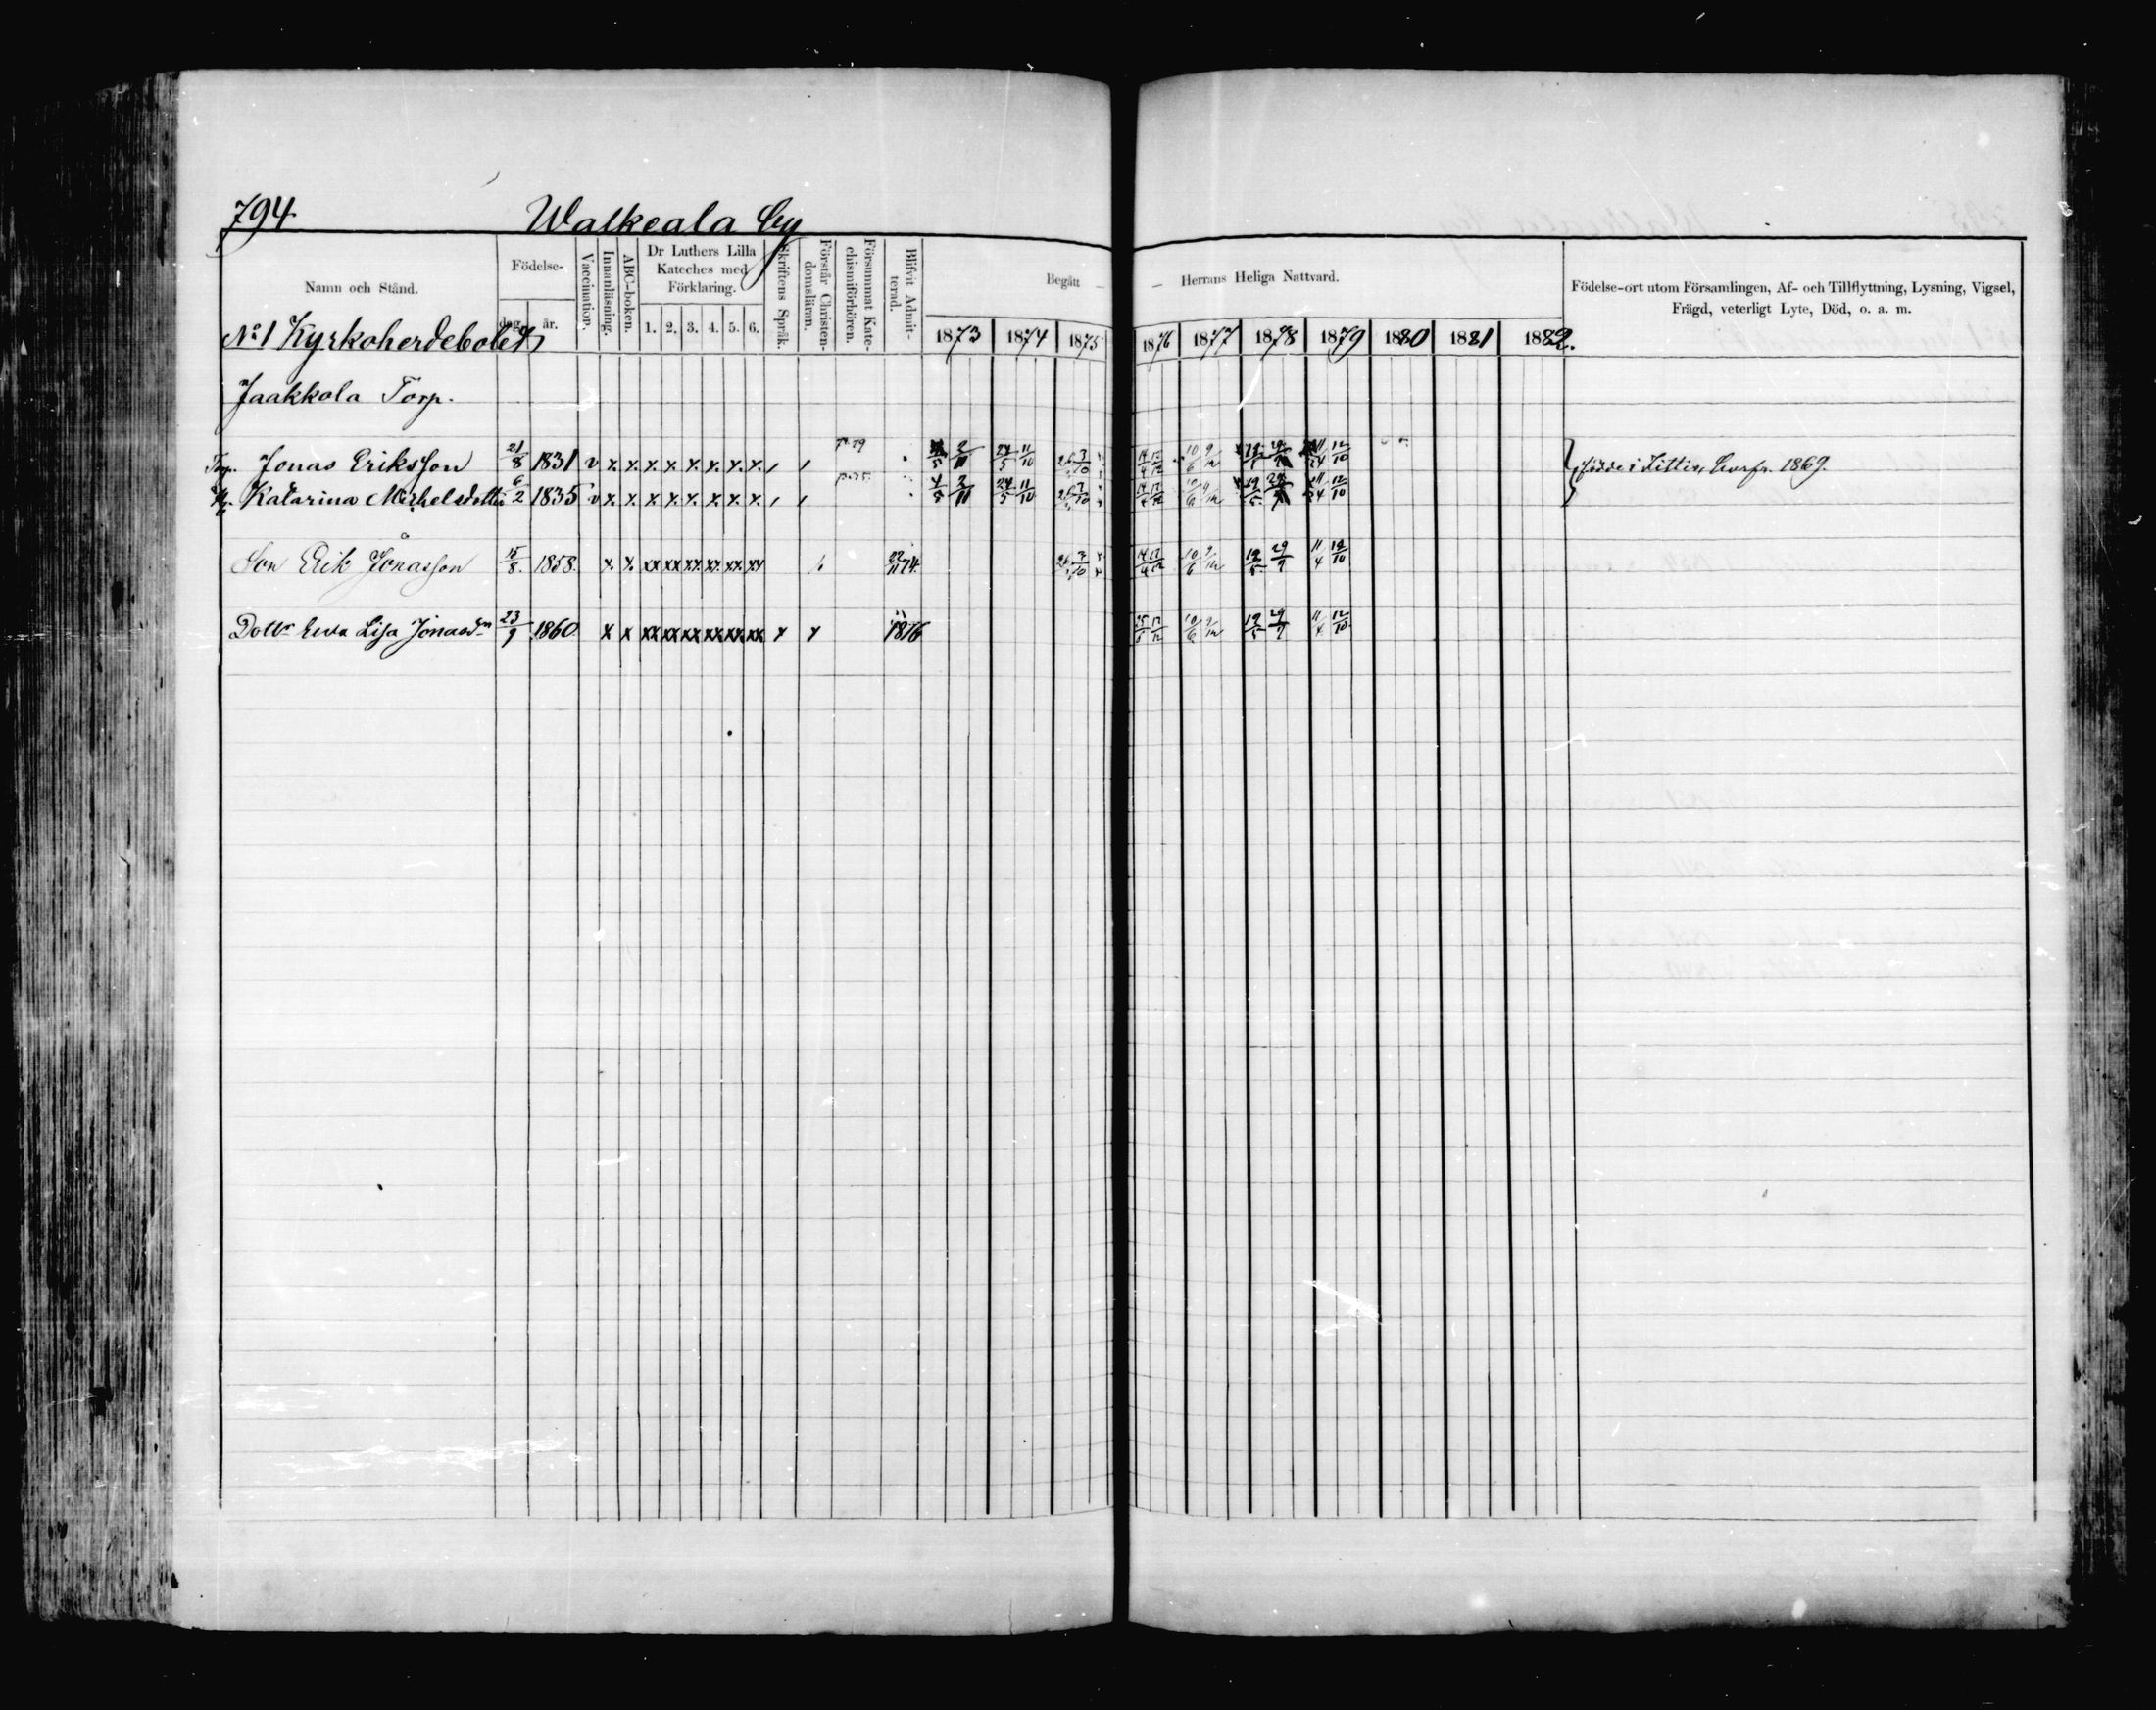 794 Walkeala by
Namn och Stånd. Födelse- dag. år. Vaccination. Innanläsning. ABC-boken. Dr Luthers Lilla Kateches med Förklaring. 1. 2. 3. 4. 5. 6. Skriftens Språk. Förstår Christendomsläran. Försummat Katechismiförhören. Blifvit Admitterad. Begått — — Herrans Heliga Nattvard. 1873 1874 1875 1876 1877 1878 1879 1880 1881 1882. Födelse-ort utom Församlingen, Af- och Tillflyttning, Lysning, Vigsel, Frägd, veterligt Lyte, Död, o. a. m.
No 1 Kyrkoherdebolet
Jaakkola Torp.
Torp. Jonas Eriksson 21/8 1831 v x. x. x. x. x. x. x. x. 2/11 24/5 11/10 10/6 11/4 12/10 födde i Jittis,  1869.
Katarina Michelsdotter 6/2 1835 v x. x. x. x. x. x. x. x. 4/5 2/11 24/5 11/10 10/6 11/4 12/10
Son Erik Jonasson 15/8. 1858. x. x. xx xx xx. xx. xx. xx 22/11 74. 10/6 12/5 29/9 11/4 12/10
Dottr Eva Lisa Jonasdr 23/9 1860. x x xx xx xx xx xx xx x x 1876 10/6 12/5 29/9 11/4 12/10